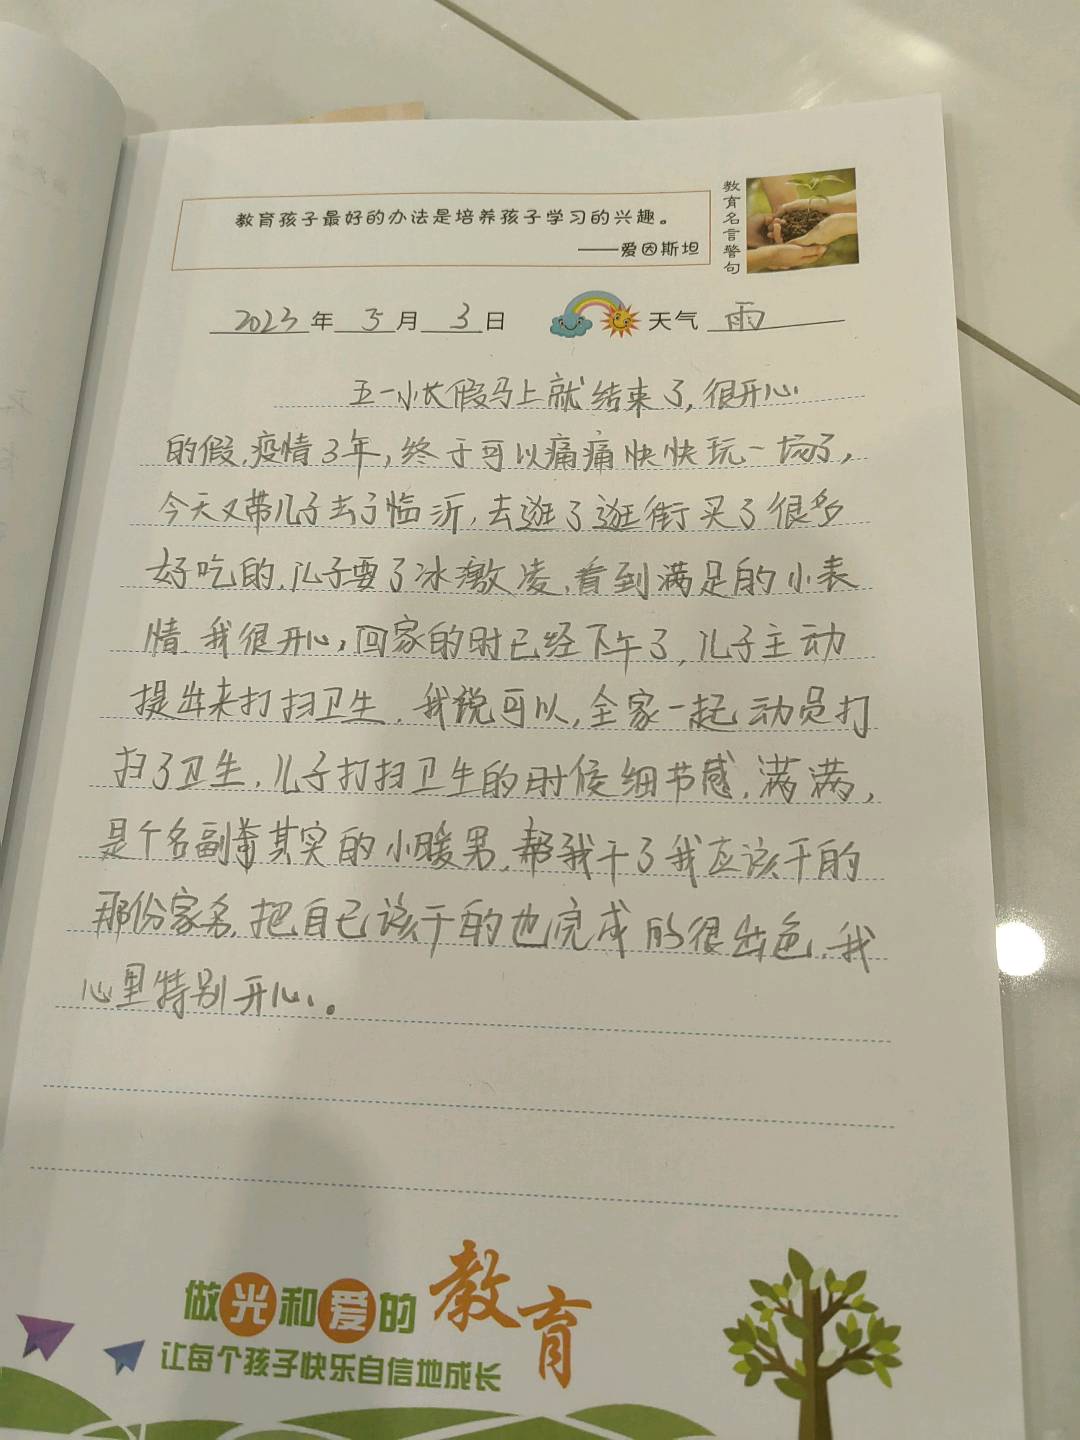 教育孩子最好的办法是培养孩子学习的兴趣。
——爱因斯坦
教育名言警句
2023年 5月 3日 天气 雨
五一小长假马上就结束了,很开心
的假,疫情3年,终于可以痛痛快快玩一场了,
今天又带儿子去了临沂,去逛了逛街买了很多
好吃的,儿子要了冰激凌,看到满足的小表
情 我很开心,回家的时已经下午了,儿子主动
提出来打扫卫生,我说可以,全家一起动员打
扫了卫生,儿子打扫卫生的时候细节感,满满,
是个名副其实的小暖男,帮我干了我应该干的
那份家务,把自已该干的也完成的很出色,我
心里特别开心。
做光和爱的教育
让每个孩子快乐自信地成长